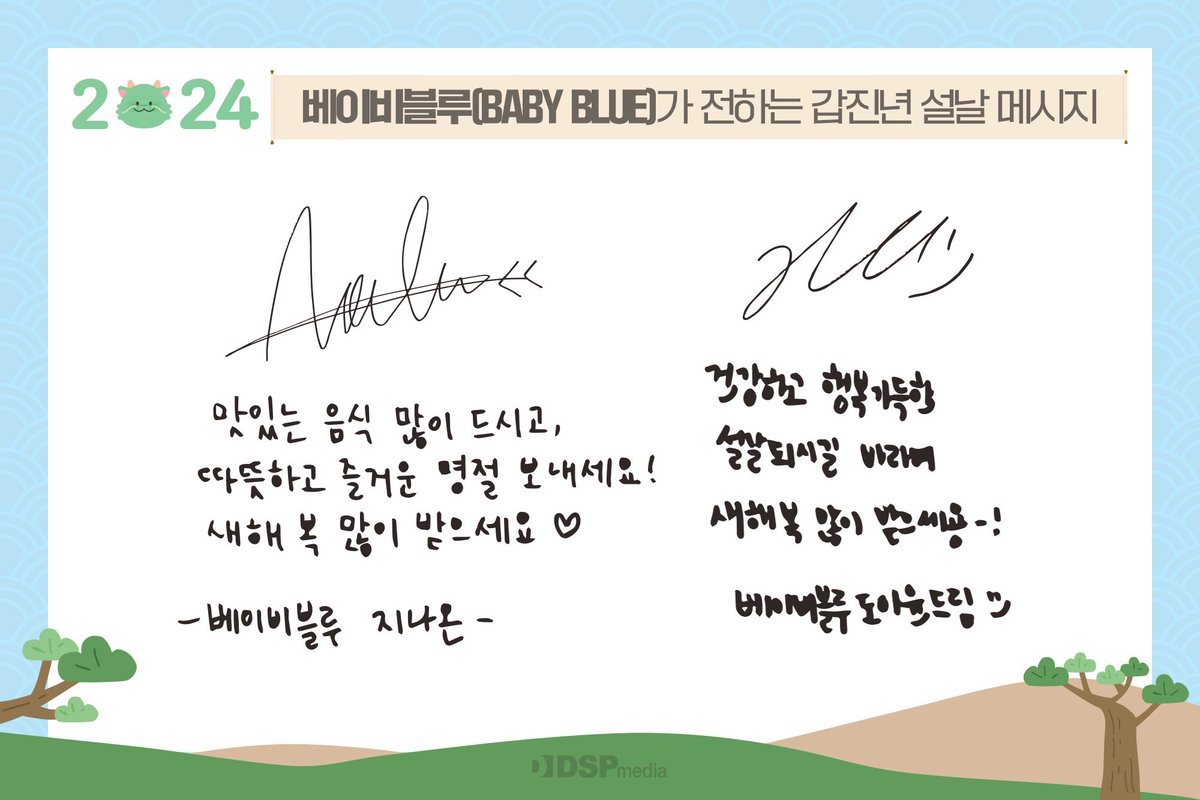 2024
베이비블루(BABY BLUE)가 전하는 갑진년 설날 메시지
맛있는 음식 많이 드시고,
따뜻하고 즐거운 명절 보내세요!
새해 복 많이 받으세요♡
-베이비블루 지나온-
건강하고 행복가득한
설날되시길 바라며
새해복 많이 받으세용~!
베이비블루 도아윤드림
DSPmedia